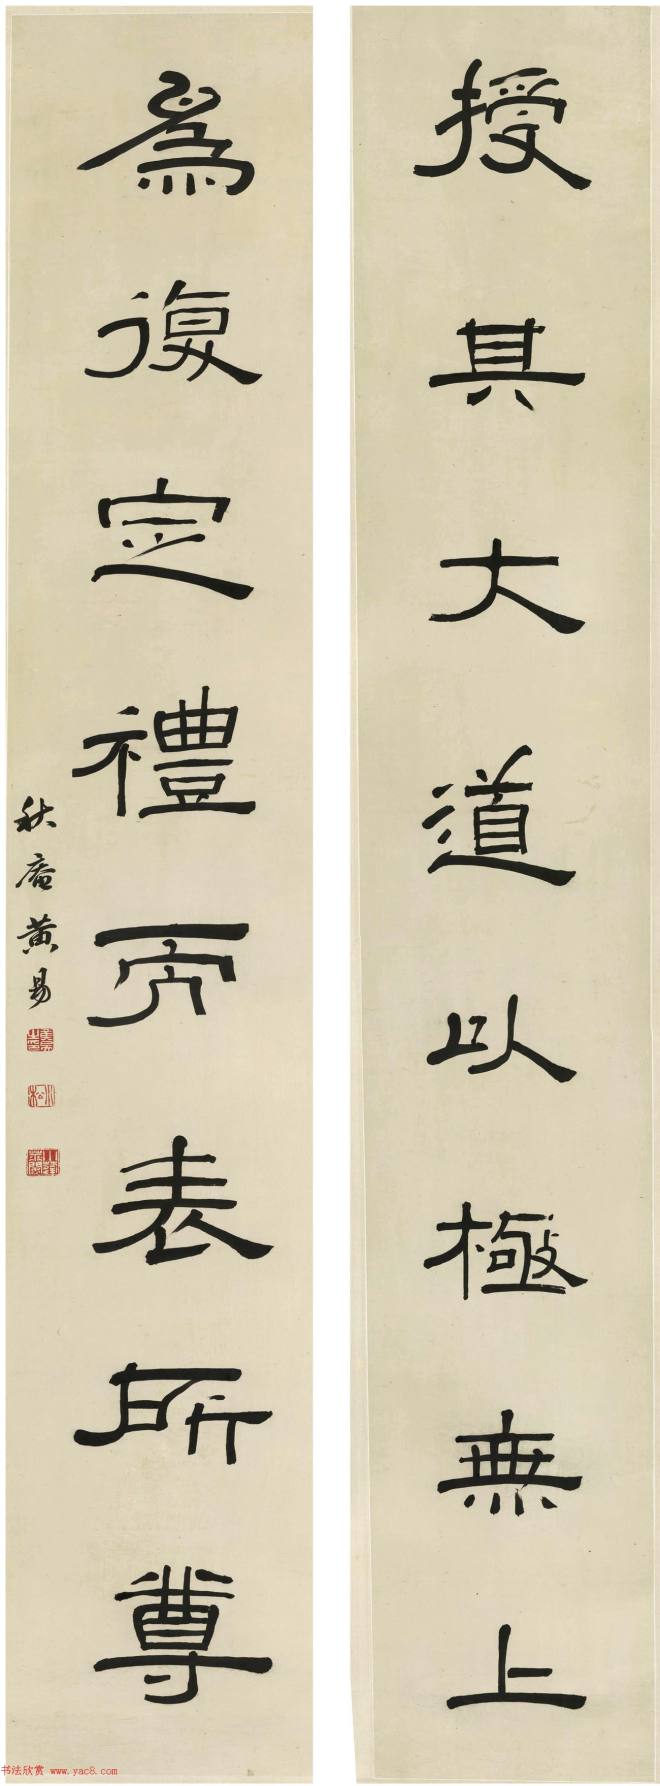 授其大道以極無上
為復定禮而表所尊
秋盦黄易
书法欣赏 www.yac8.com